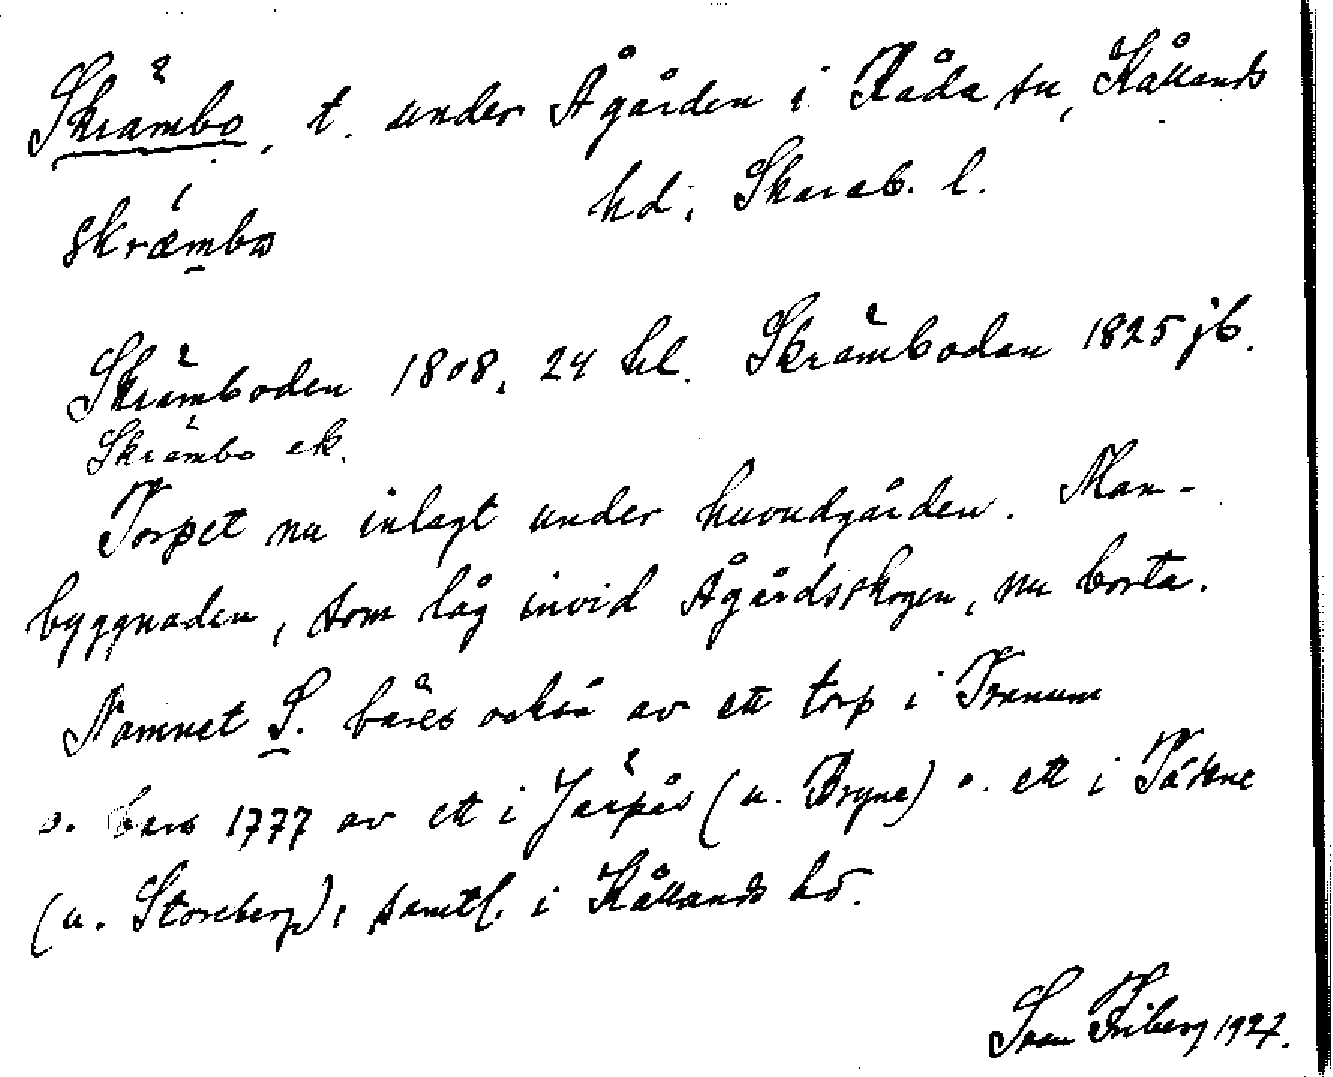 Skrämbo, t. under Ågården i Råda sn, Kållands
hd, Skarab. l.
skræmbo
Skrämboden 1808, 24 hl. Skrämbodan 1825 jb.
Skrämbo ek.
Torpet nu inlagt under huvudgården. Man-
byggnaden, som låg invid Ågårdsskogen, nu borta.
Namnet S. bäres också av ett torp i Tranum
o. bars 1777 av ett i Järpås (u. Bryne) o. ett i Tådene
(u. Storeberg), samtl. i Kållands hd.
Sven Friberg 1927.